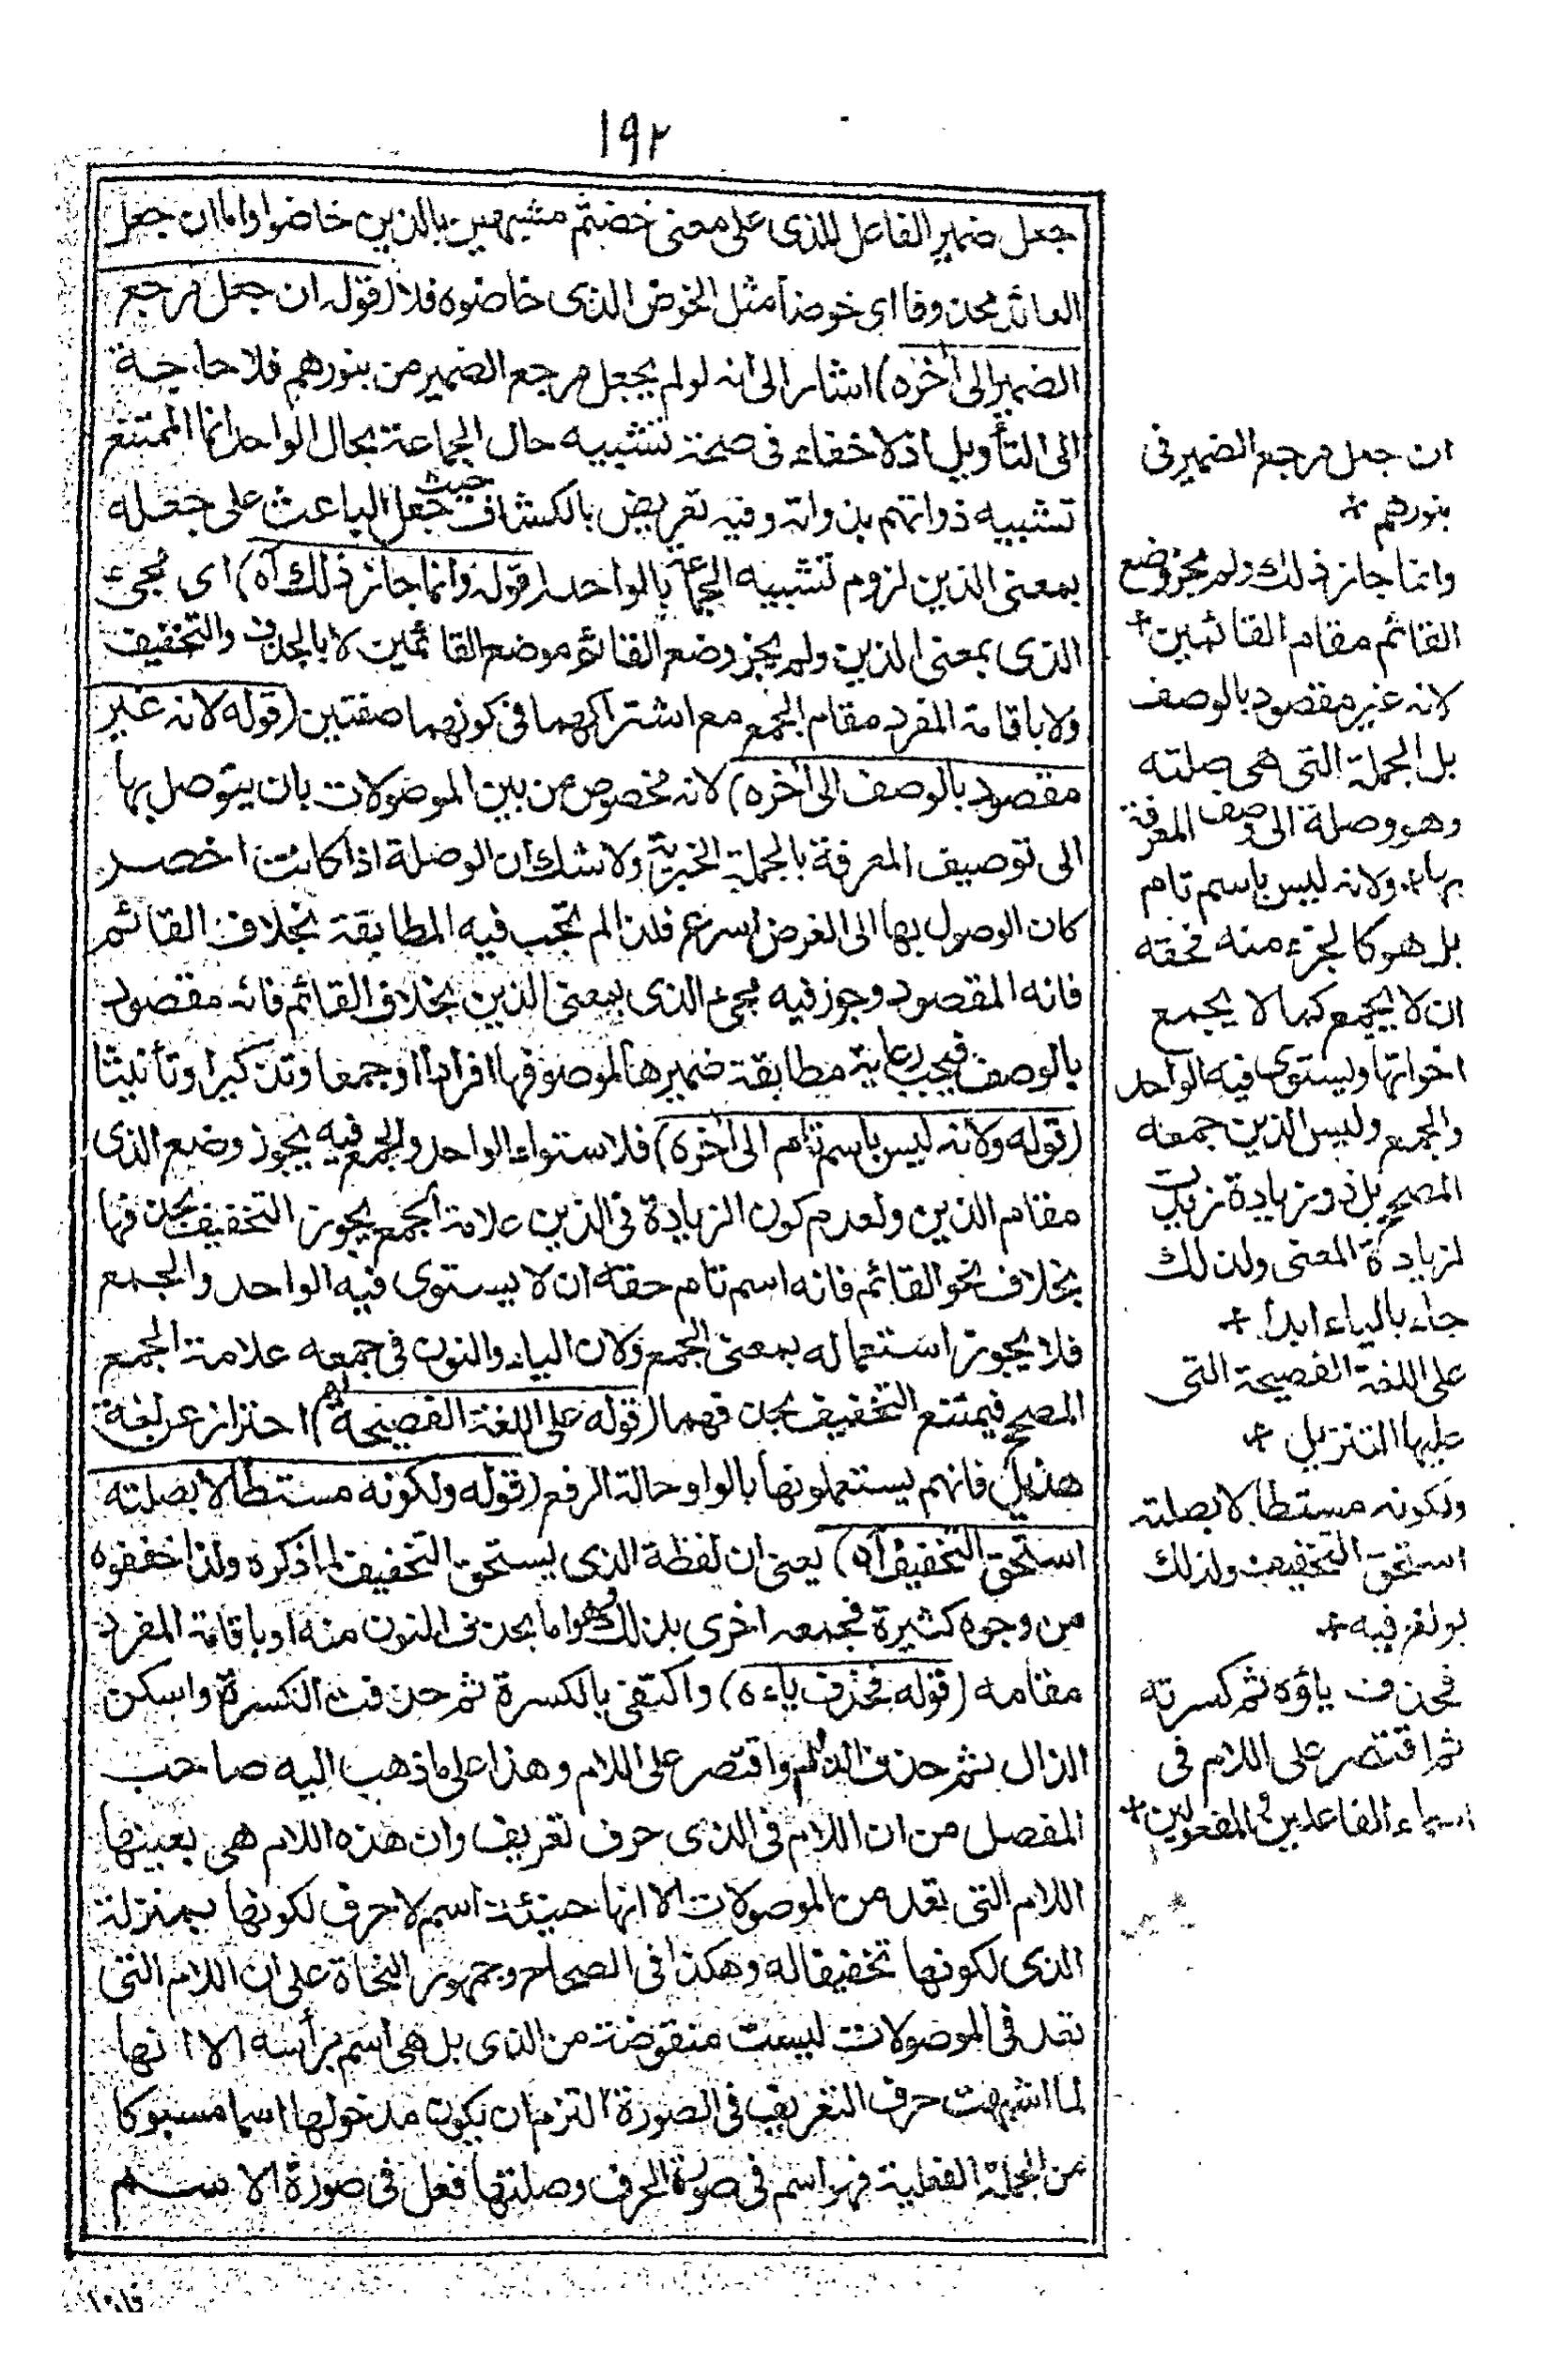 ١٩٢
جعل ضمير الفاعل للذى على معنى خضتم مشبهين بالذين خاضوا واما ان جعل
العائد محذوفا اى خوضا مثل الخوض الذى خاضوه فلا (قوله ان جعل مرجع
الضمير الى اخره) اشار الى انه لو لم يجعل مرجع الضمير من بنورهم فلا حاجة
الى التأويل اذ لا خفاء فى صحة تشبيه حال الجماعة بحال الواحد انما الممتنع
تشبيه ذواتهم بذواته وفيه تعريض بالكشاف حيث جعل الباعث على جعله
بمعنى الذين لزوم تشبيه الجماعة بالواحد (قوله وانما جاز ذلك اه) اى مجىء
الذى بمعنى الذين ولم يجز وضع القائم موضع القائمين لا بالحذف والتخفيف
ولا باقامة المفرد مقام الجمع مع اشتراكهما فى كونهما صفتين (قوله لانه غير
مقصود بالوصف الى اخره) لانه مخصوص من بين الموصولات بان يتوصل بها
الى توصيف المعرفة بالجملة الخبرية ولا شك ان الوصلة اذا كانت اخصر
كان الوصول بها الى الغرض اسرع فلذا لم تجب فيه المطابقة بخلاف القائم
فانه المقصود وجوز فيه مجىء الذى بمعنى الذين بخلاف القائم فانه مقصود
بالوصف فيجب رعاية مطابقة ضميرها لموصوفها افرادا او جمعا وتذكيرا وتأنيثا
(قوله ولانه ليس باسم تام الى اخره) فلاستواء الواحد والجمع فيه يجوز وضع الذى
مقام الذين ولعدم كون الزيادة فى الذين علامة الجمع يجوز التخفيف بحذفها
بخلاف نحو القائم فانه اسم تام حقه ان لا يستوى فيه الواحد والجمع
فلا يجوز استعماله بمعنى الجمع ولان الياء والنون فى جمعه علامة الجمع
المصحح فيمتنع التخفيف بحذفهما (قوله على اللغة الفصيحة اه) احتراز عن لغة
هذيل فانهم يستعملونها بالواو حالة الرفع (قوله ولكونه مستطالا بصلته
استحق التخفيف اه) يعنى ان لفظة الذى يستحق التخفيف لما ذكره ولذا خففوه
من وجوه كثيرة فجمعه اخرى بذلك وهو اما بحذف النون منه او باقامة المفرد
مقامه (قوله فحذف ياءه) واكتفى بالكسرة ثم حذفت الكسرة واسكن
الذال ثم حذف الذال واقتصر على اللام وهذا على ما ذهب اليه صاحب
المفصل من ان اللام فى الذى حرف تعريف وان هذه اللام هى بعينها
اللام التى تعد من الموصولات الا انها حينئذ اسم لا حرف لكونها بمنزلة
الذى لكونها تخفيفا له وهكذا فى الصحاح وجمهور النحاة على ان اللام التى
تعد فى الموصولات ليست منقوضة من الذى بل هى اسم برأسه الا انها
لما اشبهت حرف التعريف فى الصورة التزم ان يكون مدخولها اسما مسبوكا
من الجملة الفعلية فهو اسم فى صورة الحرف وصلتها فعل فى صورة الاسم
ان جعل مرجع الضمير فى
بنورهم +
وانما جاز ذلك ولم يجز وضع
القائم مقام القائمين +
لانه غير مقصود بالوصف
بل الجملة التى هى صلته
وهو وصلة الى وصف المعرفة
بها + ولانه ليس باسم تام
بل هو كالجزء منه فحقه
ان لا يجمع كما لا يجمع
اخواتها ويستوى فيه الواحد
والجمع وليس الذين جمعه
المصحح بل ذو زيادة زيدت
لزيادة المعنى ولذلك
جاء بالياء ابدا +
على اللغة الفصيحة التى
عليها التنزيل +
ولكونه مستطالا بصلته
استحق التخفيف ولذلك
بولغ فيه +
فحذف ياؤه ثم كسرته
ثم اقتصر على اللام فى
اسماء الفاعلين والمفعولين +